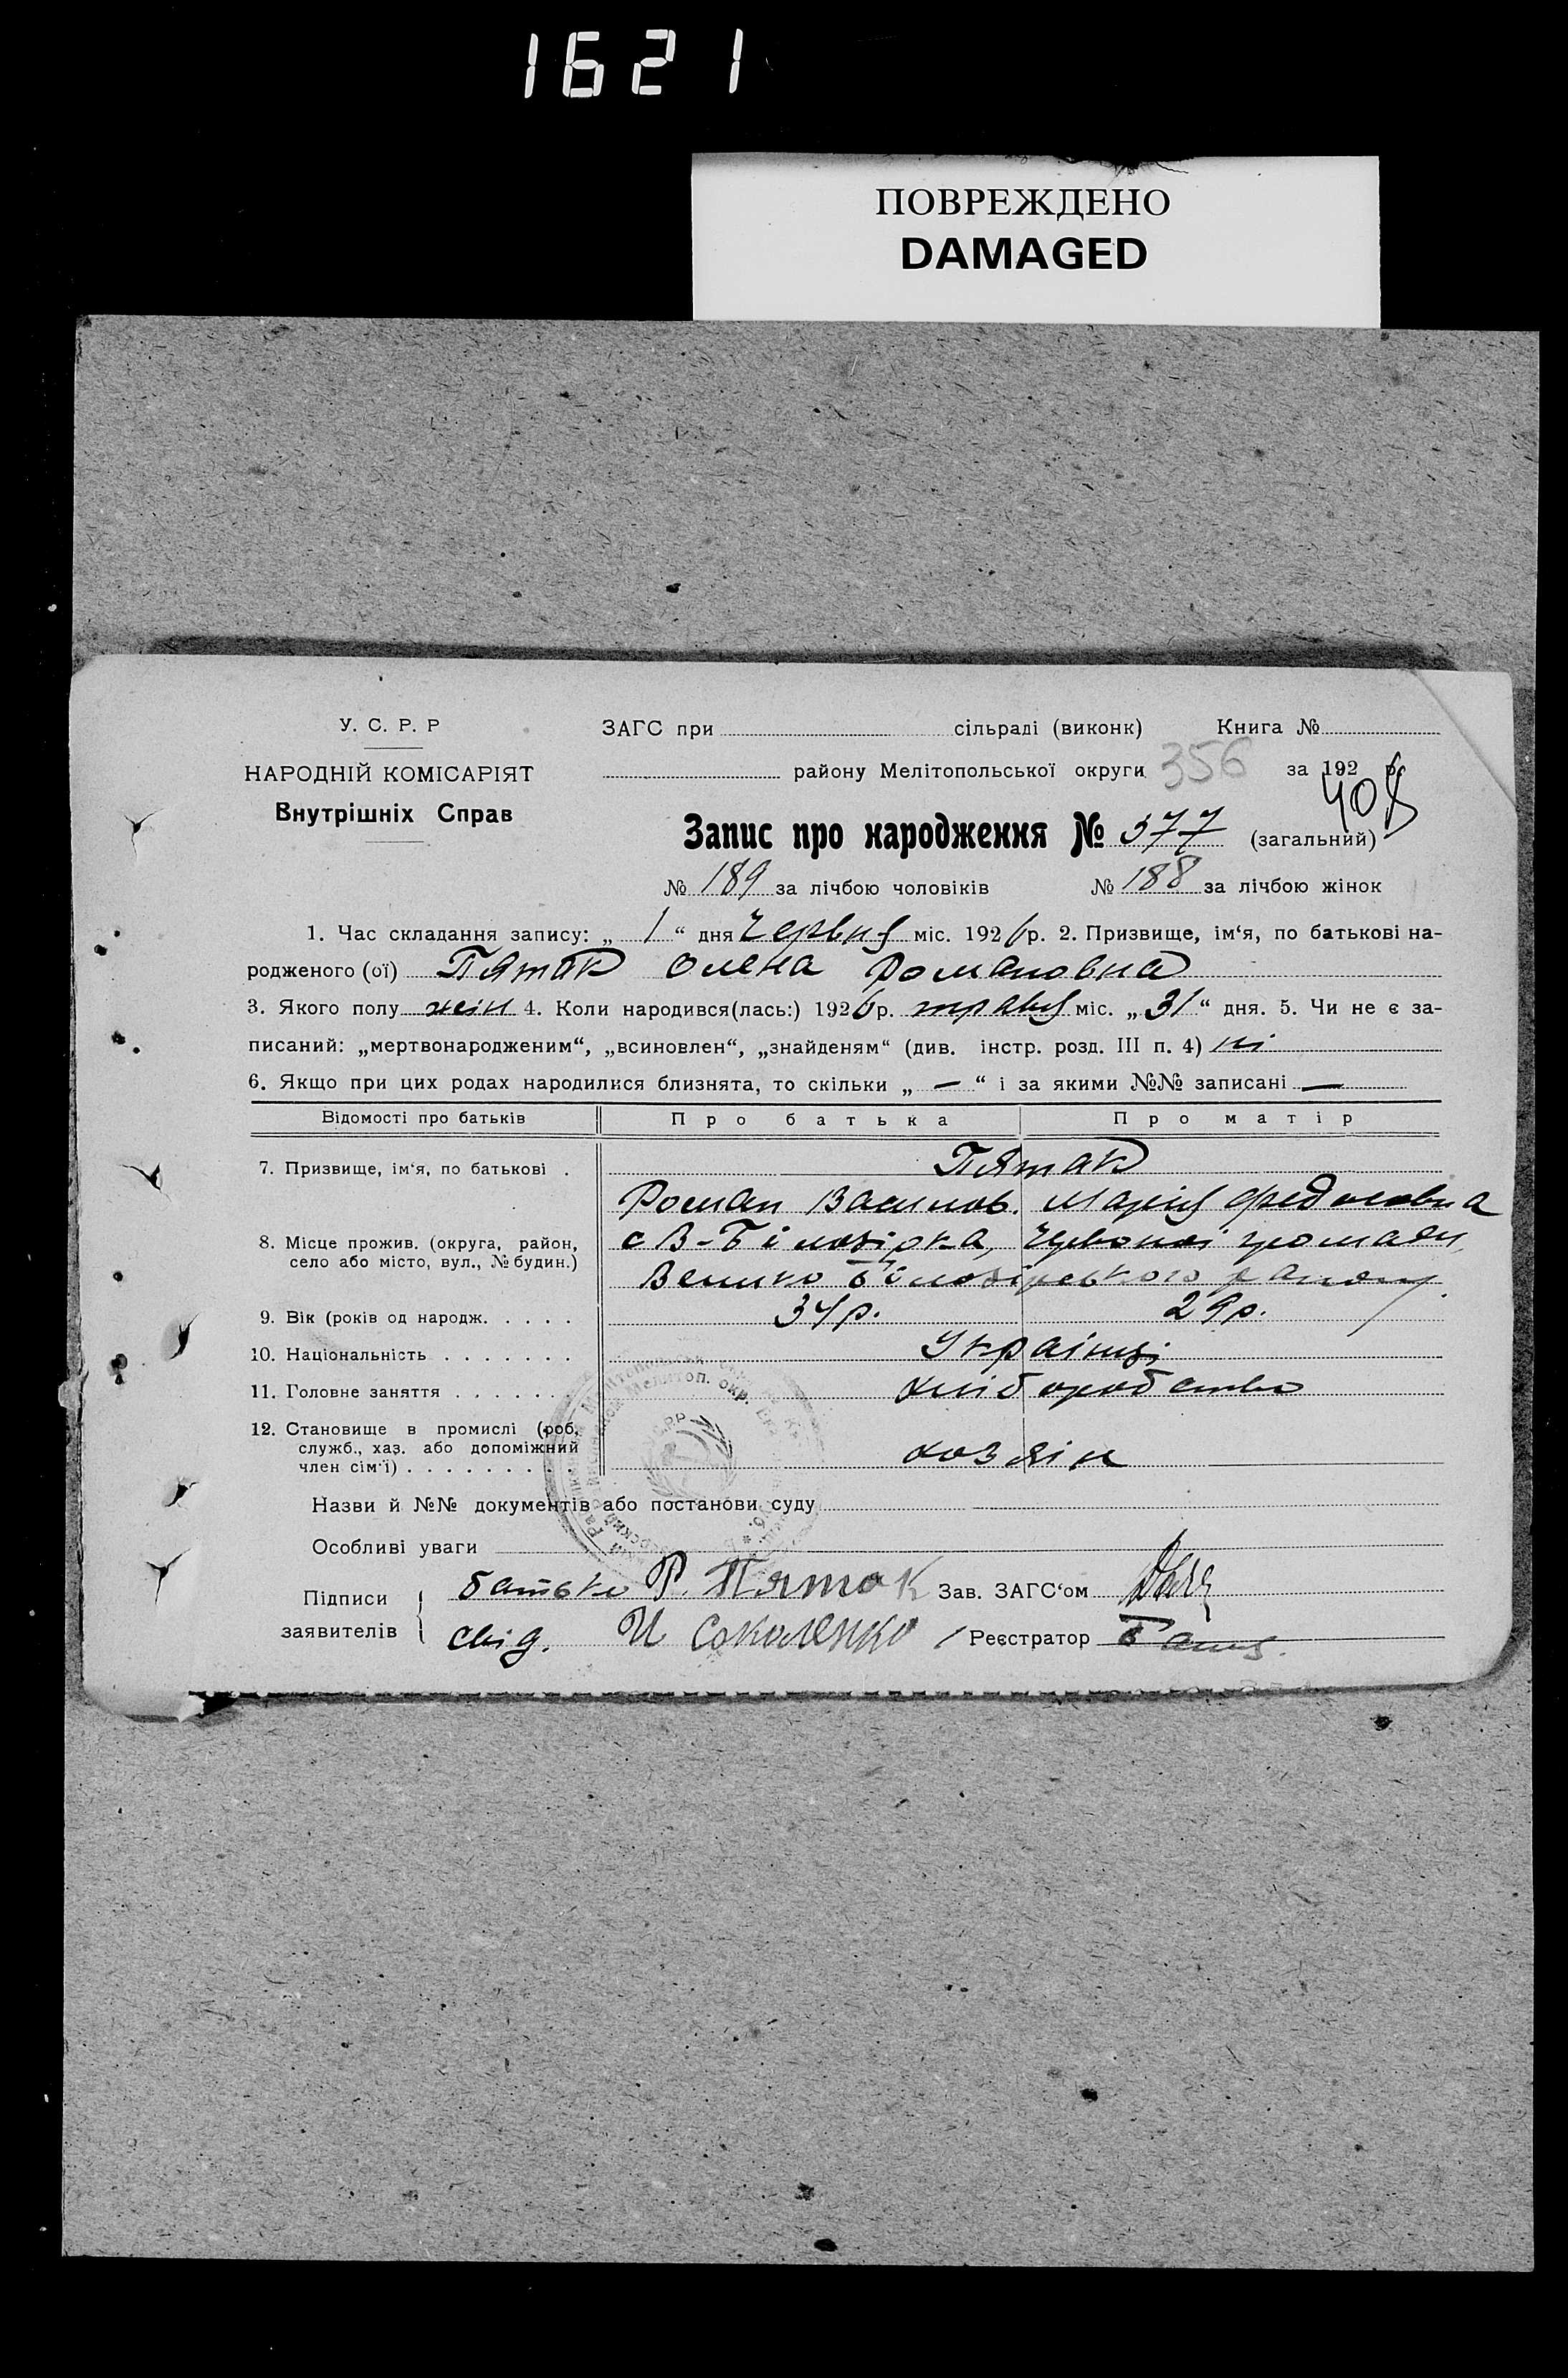 1621
ПОВРЕЖДЕНО
DAMAGED
У. С. Р. Р
ЗАГС при сільраді (виконк) Книга №
НАРОДНІЙ КОМІСАРІЯТ
району Мелітопольської округи 356 за 192 6 р.
Внутрішніх Справ
408
Запис про народження № 377 (загальний)
№ 189 за лічбою чоловіків № 188 за лічбою жінок
1. Час складання запису: „ 1 “ дня Червня міс. 1926 р. 2. Призвище, ім‘я, по батькові на-
родженого (ої) Пятак Олена Романовна
3. Якого полу жін 4. Коли народився(лась:) 1926 р. травня міс. „ 31 “ дня. 5. Чи не є за-
писаний: „мертвонародженим“, „всиновлен“, „знайденям“ (див. інстр. розд. III п. 4) ні
6. Якщо при цих родах народилися близнята, то скільки „ — “ і за якими №№ записані —
Відомості про батьків Про батька Про матір
7. Призвище, ім‘я, по батькові . Пятак
Роман Васильов. Марія Федоровна
8. Місце прожив. (округа, район, с В-Білозірка, Червоної громади,
село або місто, вул., № будин.)
Велико Білозірського району
9. Вік (років од народж. . . . . 34 р. 29 р.
10. Національність . . . . . . . Українці
11. Головне заняття . . . . . . . хліборобство
12. Становище в промислі (роб,
служб., хаз. або допоміжний
член сім‘ї) . . . . . . . . . хозяін
Назви й №№ документів або постанови суду
Особливі уваги
Підписи батько Р. Пятак Зав. ЗАГС‘ом
заявителів свід. И Соколенко Реєстратор